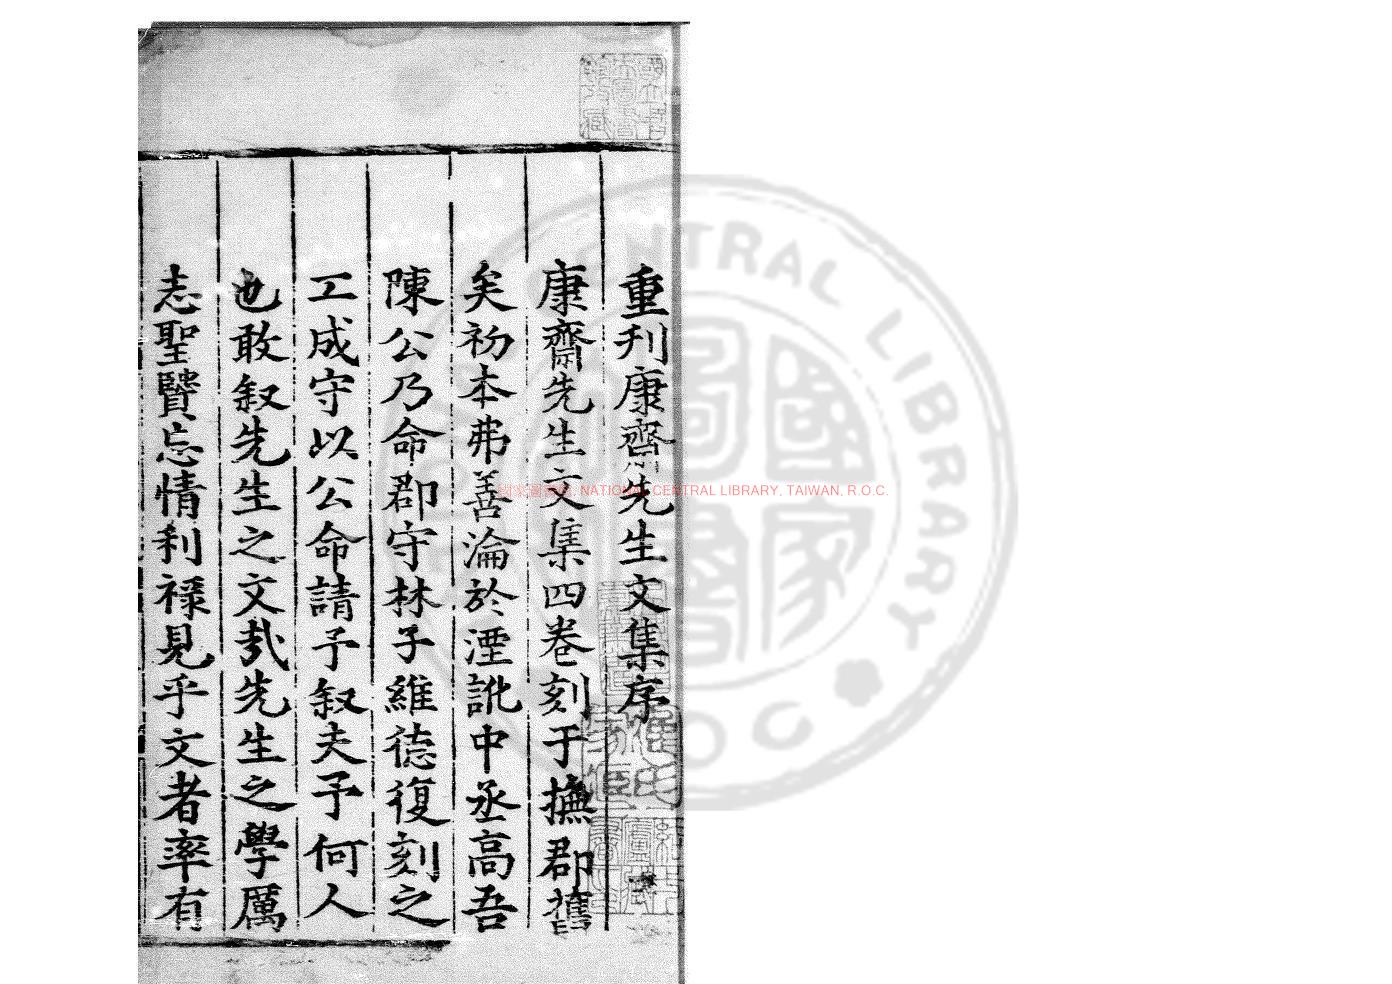 重刋康齋先生文集序
康齋先生文集四卷刻于撫郡舊
矣初本弗善淪於湮訛中丞高吾
陳公乃命郡守林子維德復刻之
工成守以公命請予叙夫予何人
也敢叙先生之文㢤先生之學厲
志聖賢忘情利祿見乎文者率有
國家圖書館, NATIONAL CENTRAL LIBRARY, TAIWAN, R.O.C.
CENTRAL LIBRARY